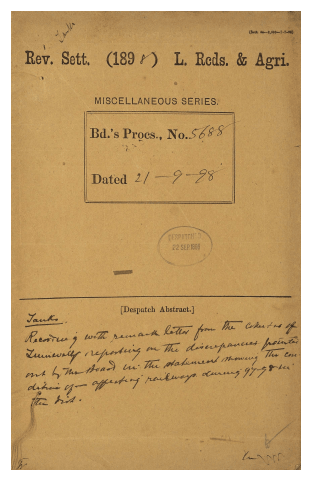 Tanks
Rev. Sett. (1898) L. Rcds. & Agri.
MISCELLANEOUS SERIES.
Bd.'s Procs., No. 5688
Dated 21-9-98
[Despatch Abstract.]
Tanks.
Recording with remark letter from the of
Tinnevelly reporting on the discrepancies pointed
out by the Board in the statement showing the con
dition of affecting railways during 97-98 in
the dist.